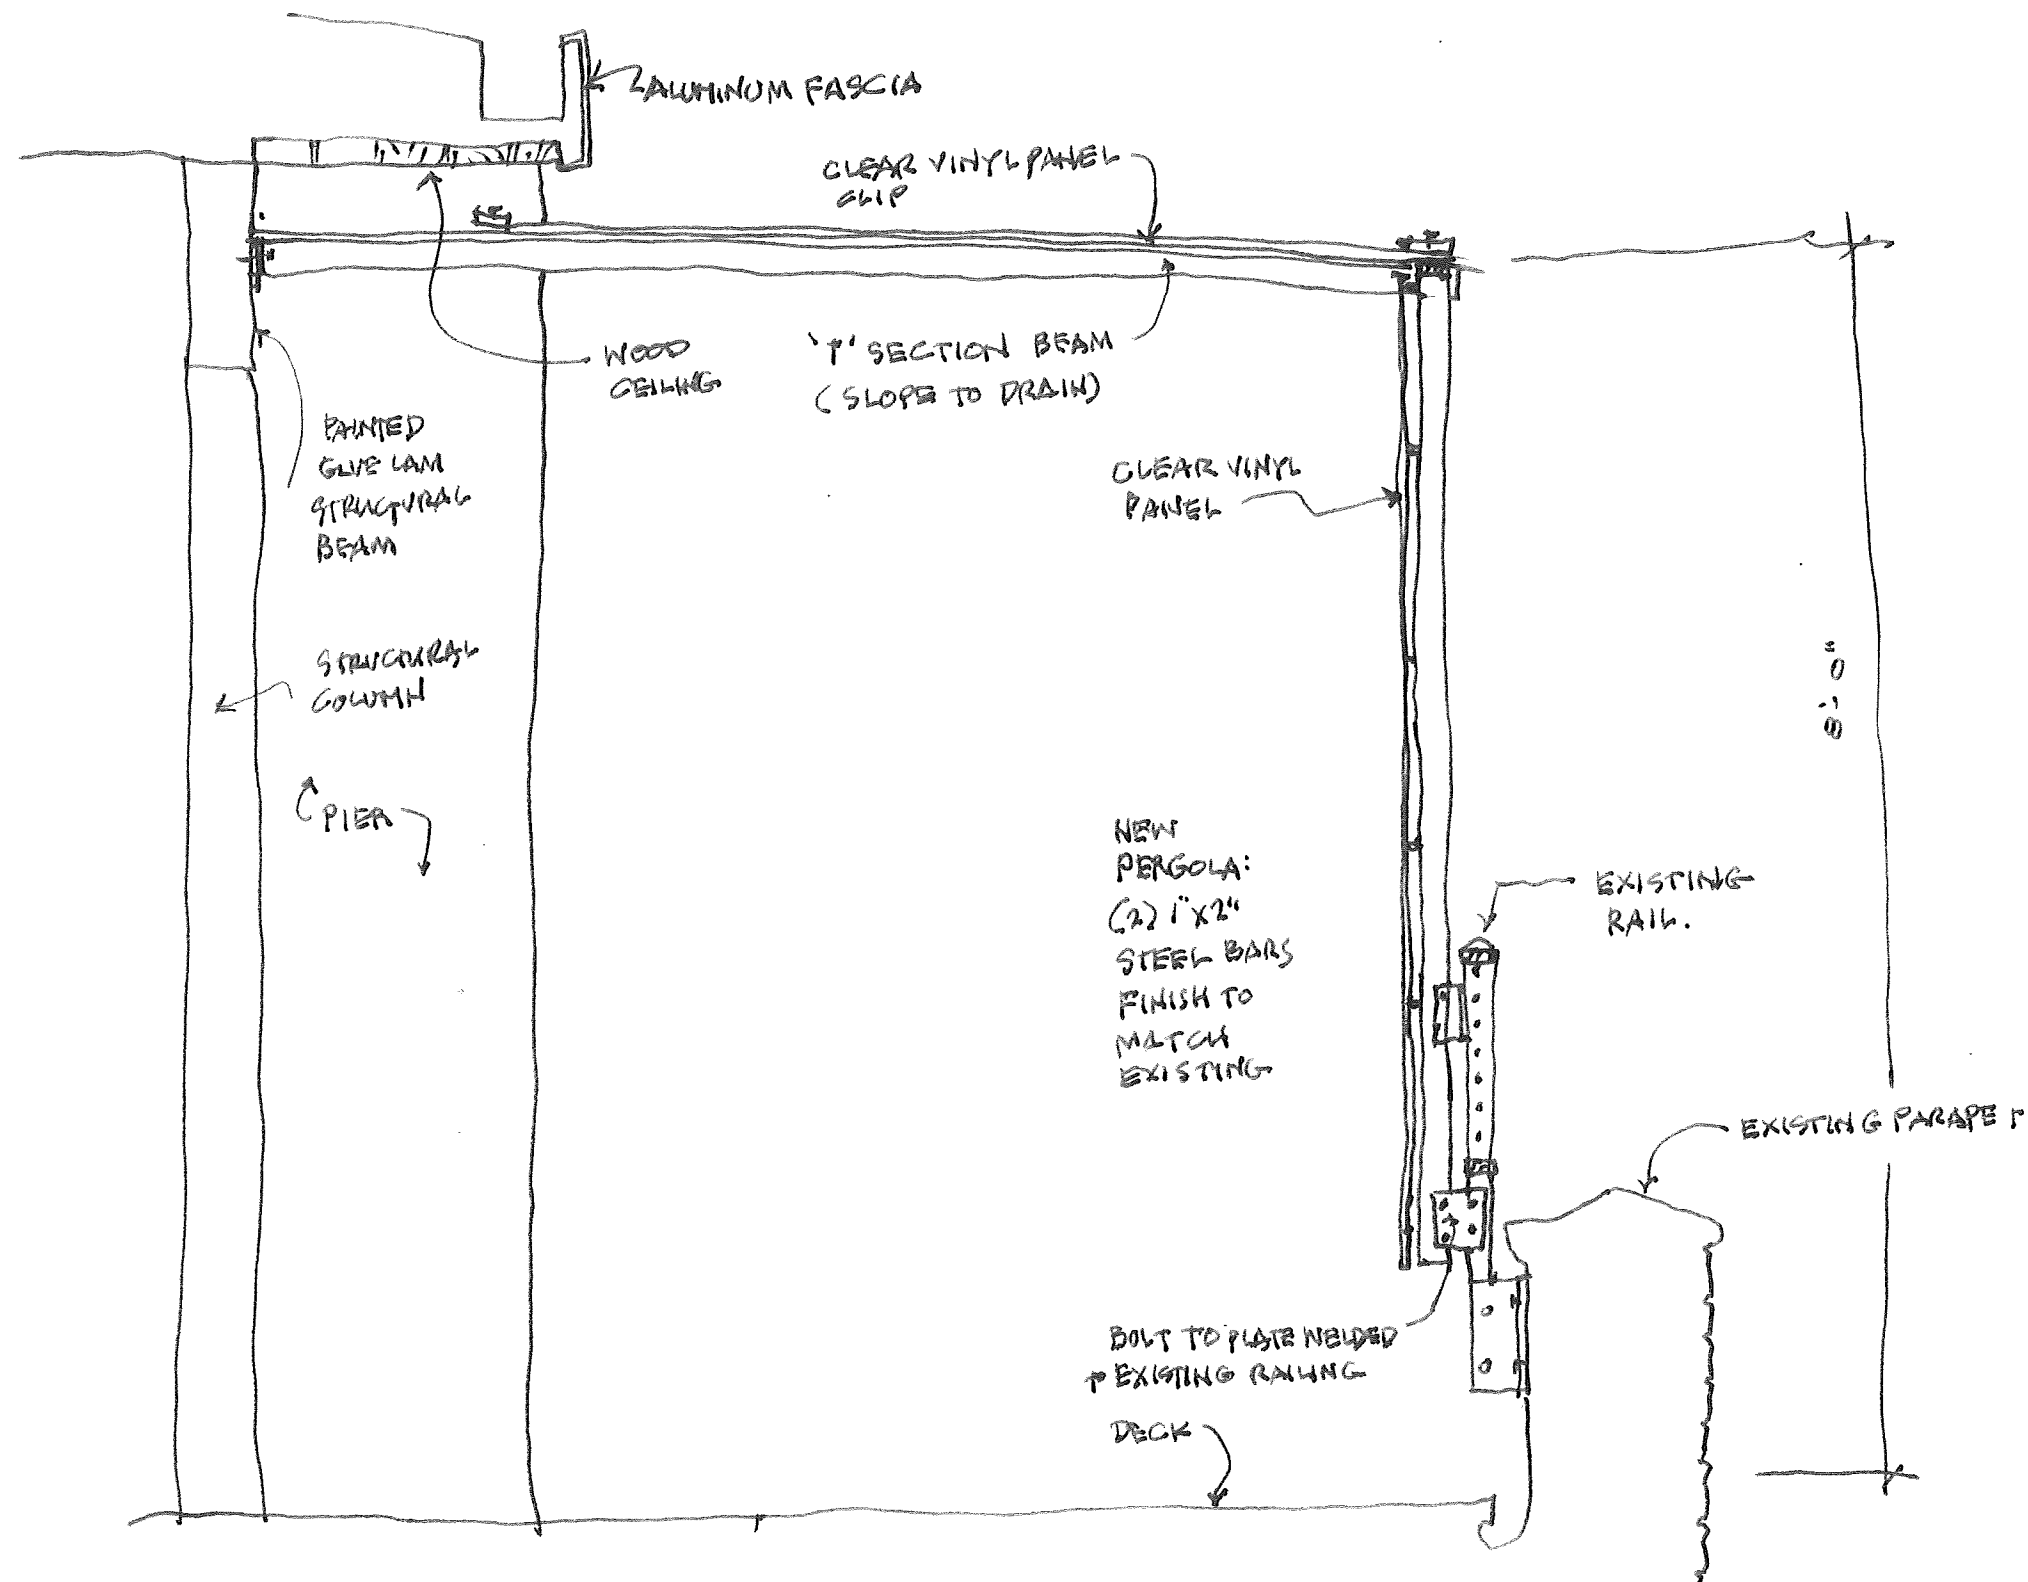 ALUMINUM FASCIA
CLEAR VINYL PANEL
CLIP
WOOD
CEILING
'T' SECTION BEAM
(SLOPE TO DRAIN)
PAINTED
GLUE LAM
STRUCTURAL
BEAM
CLEAR VINYL
PANEL
STRUCTURAL
COLUMN
8'-0"
PIER
NEW
PERGOLA:
(2) 1"X2"
STEEL BARS
FINISH TO
MATCH
EXISTING
EXISTING
RAIL.
EXISTING PARAPET
BOLT TO PLATE WELDED
T EXISTING RAILING
DECK